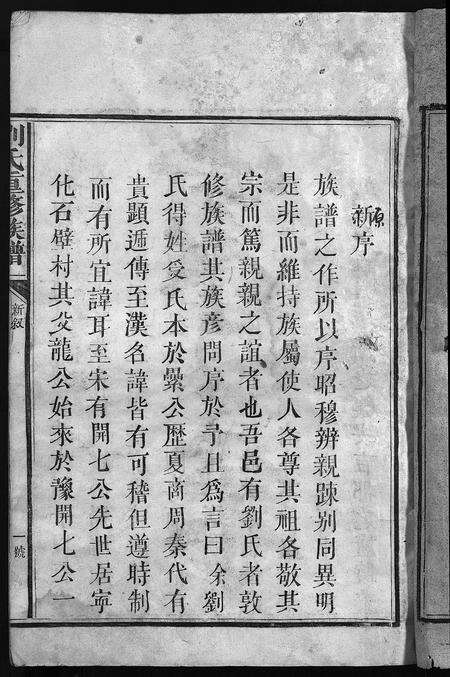 原
新序
族譜之作所以序昭穆辨親踈别同異明
是非而維持族屬使人各尊其祖各敬其
宗而篤親親之誼者也吾邑有劉氏者敦
修族譜其族彦問序於予且為言曰余劉
氏得姓受氏本於纍公歴夏商周秦代有
貴顕逓傳至漢名諱皆有可稽但遵時制
而有所宜諱耳至宋有開七公先世居寧
化石壁村其父龍公始來於豫開七公一
劉氏重修族譜
新叙
一號